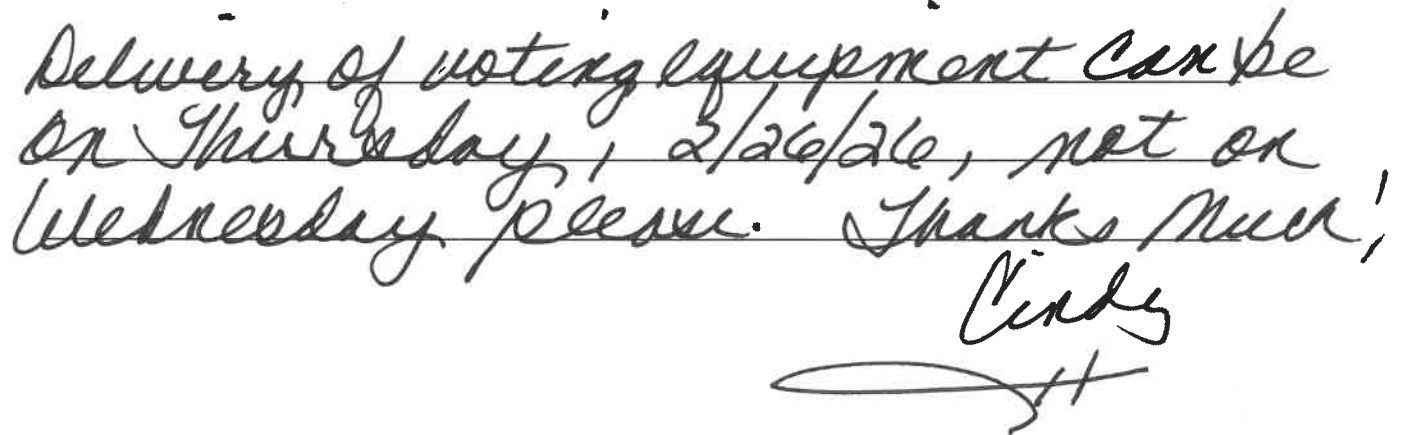 Delivery of voting equipment can be
on Thursday, 2/26/26, not on
Wednesday please. Thanks Much!
Cindy